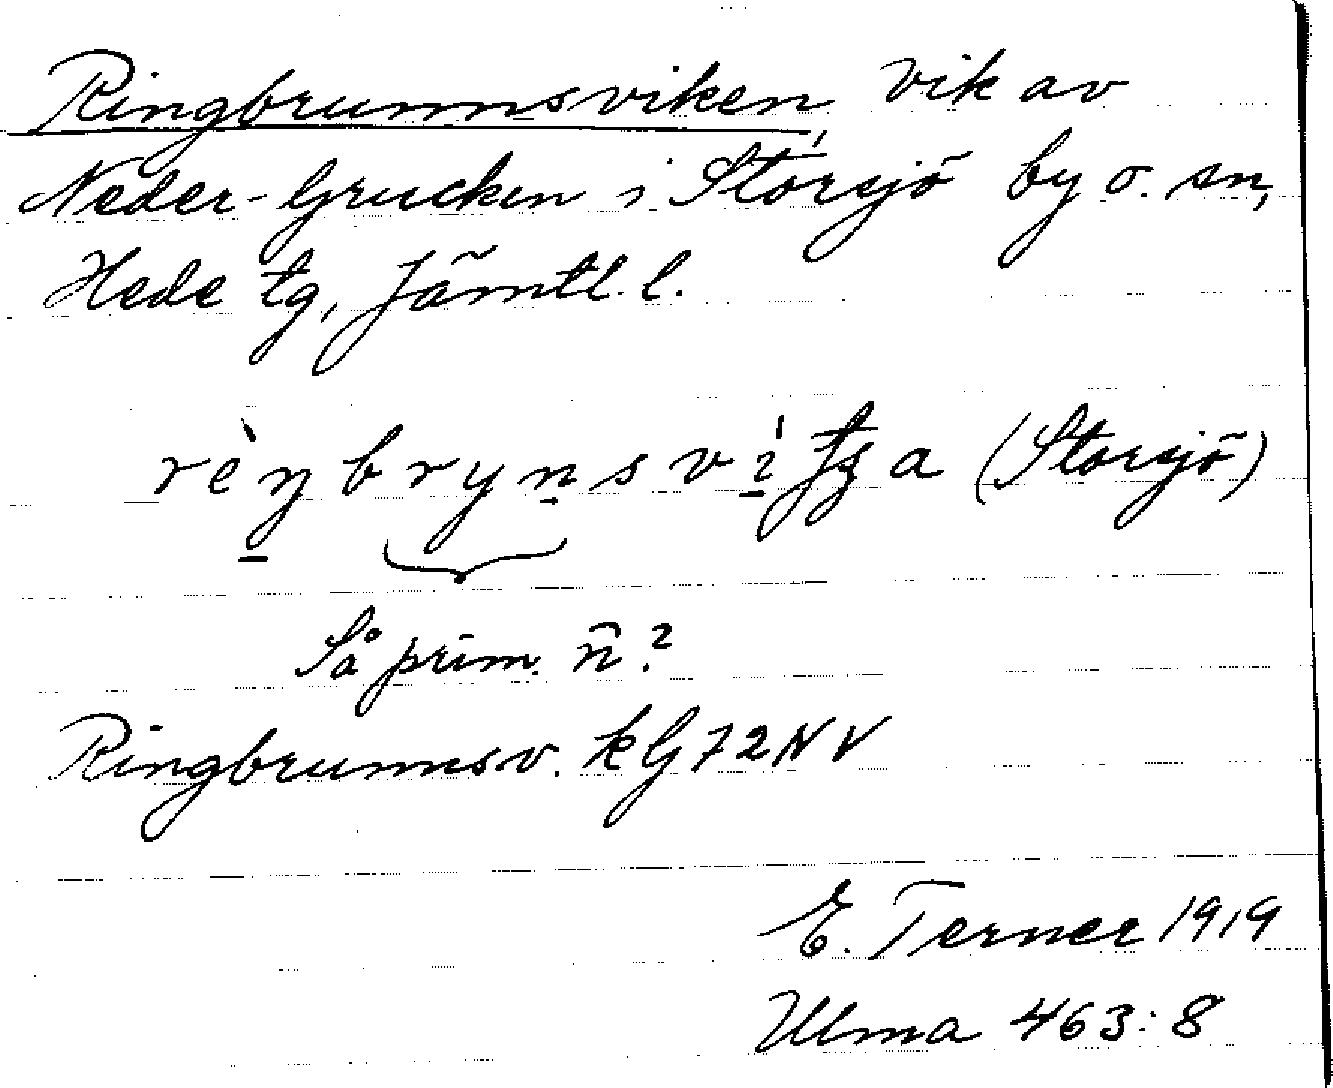 Ringbrunnsviken, vik av
Neder-Grucken i Storsjö by o. sn,
Hede tg, Jämtl. l.
(Storsjö)
Så prim. n̂?
Ringbrunnsv. kG72NV
E. Terner 1919
Ulma 463:8